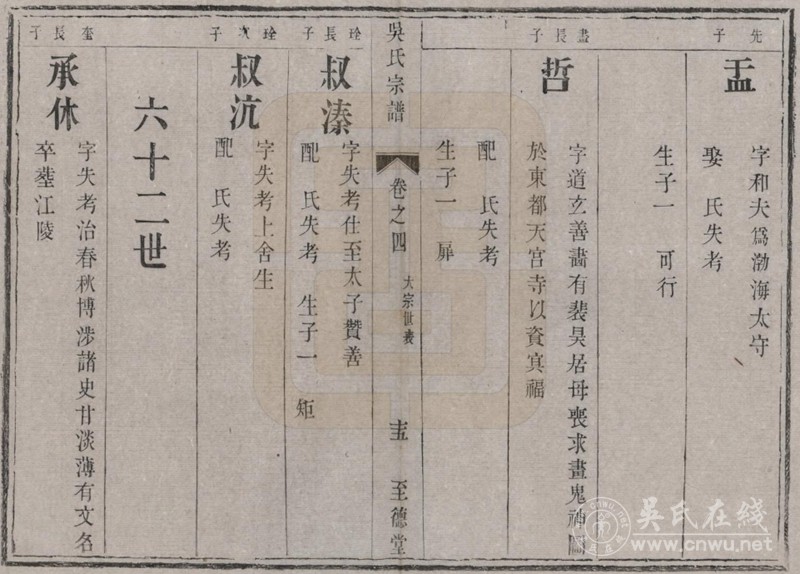 先子
盂
字和夫爲渤海太守
娶　氏失考
生子一　可行
畫長子
哲
字道玄善畵有裴旻居母喪求畫鬼神圖
於東都天宮寺以資冥福
配　氏失考
生子一　犀
吳氏宗譜
卷之四
大宗世表
至德堂
珤長子
叔溱
字失考仕至太子贊善
配　氏失考　生子一　矩
次子
叔沆
字失考上舍生
配　氏失考
六十二世
奎長子
承休
字失考治春秋博涉諸史甘淡薄有文名
卒塟江陵
吳氏在綫
www.cnwu.net